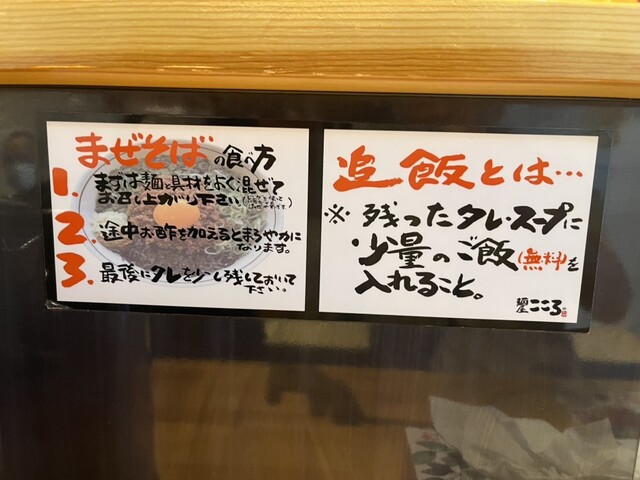 まぜそばの食べ方
1. まずは麺と具材をよく混ぜて
お召し上がり下さい
2. 途中お酢を加えるとまろやかに
なります。
3. 最後にタレを少し残しておいて
下さい。
追飯とは…
※残ったタレ・スープに
少量のご飯(無料)を
入れること。
麺屋こころ